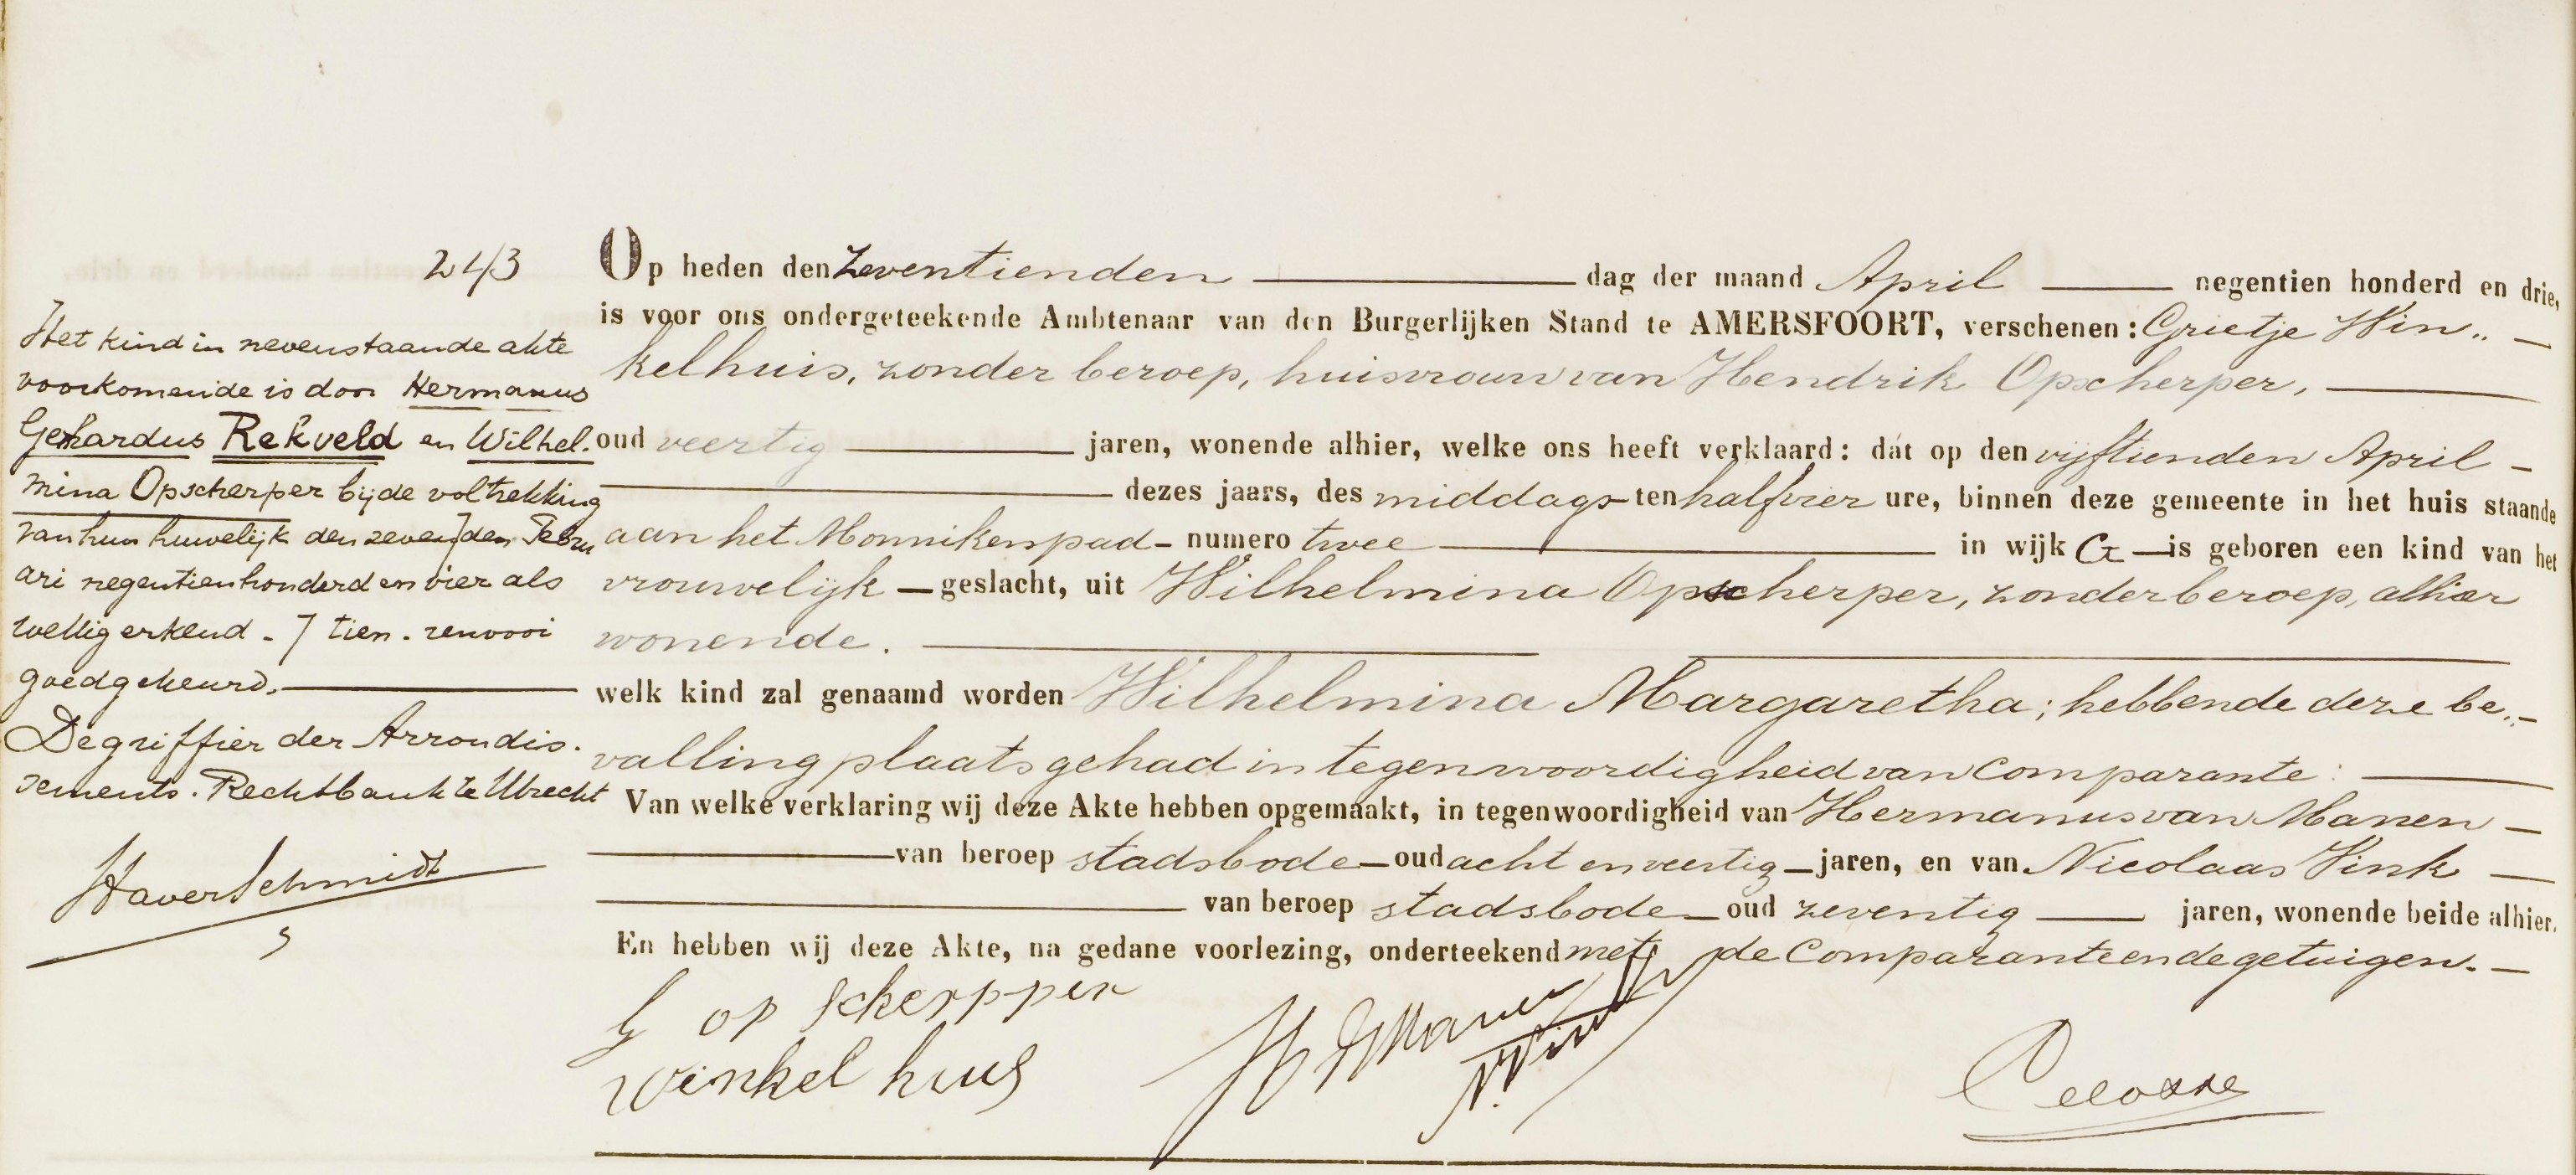 243
Het kind in nevenstaande akte
voorkomende is door Hermanus
Gerhardus Rekveld en Wilhel.
mina Opscherper bij de voltrekking
van hun huwelijk den zeven⌉den Febru
ari negentienhonderd en vier als
wettig erkend. ⌉ tien. renvooi
goedgekeurd.
De griffier der Arrondis.
sements. Rechtbank te Utrecht
HaverSchmidt
Op heden den zeventienden dag der maand April negentien honderd en drie,
is voor ons ondergeteekende Ambtenaar van den Burgerlijken Stand te AMERSFOORT, verschenen: Grietje Win„
kelhuis, zonder beroep, huisvrouw van Hendrik Opscherper,
oud veertig jaren, wonende alhier, welke ons heeft verklaard: dat op den vijftienden April
dezes jaars, des middags ten halfvier ure, binnen deze gemeente in het huis staande
aan het Monnikenpad numero twee in wijk G is geboren een kind van het
vrouwelijk geslacht, uit Wilhelmina Opscherper, zonder beroep, alhier
wonende.
welk kind zal genaamd worden Wilhelmina Margaretha; hebbende deze be„
valling plaats gehad in tegenwoordigheid van Comparante.
Van welke verklaring wij deze Akte hebben opgemaakt, in tegenwoordigheid van Hermanus van Manen
van beroep stadsbode oud acht en veertig jaren, en van Nicolaas Vink
van beroep stadsbode oud zeventig jaren, wonende beide alhier.
En hebben wij deze Akte, na gedane voorlezing, onderteekend met de Comparante en de getuigen.
G op scherpper
winkel huus
HvManen
N. Vink